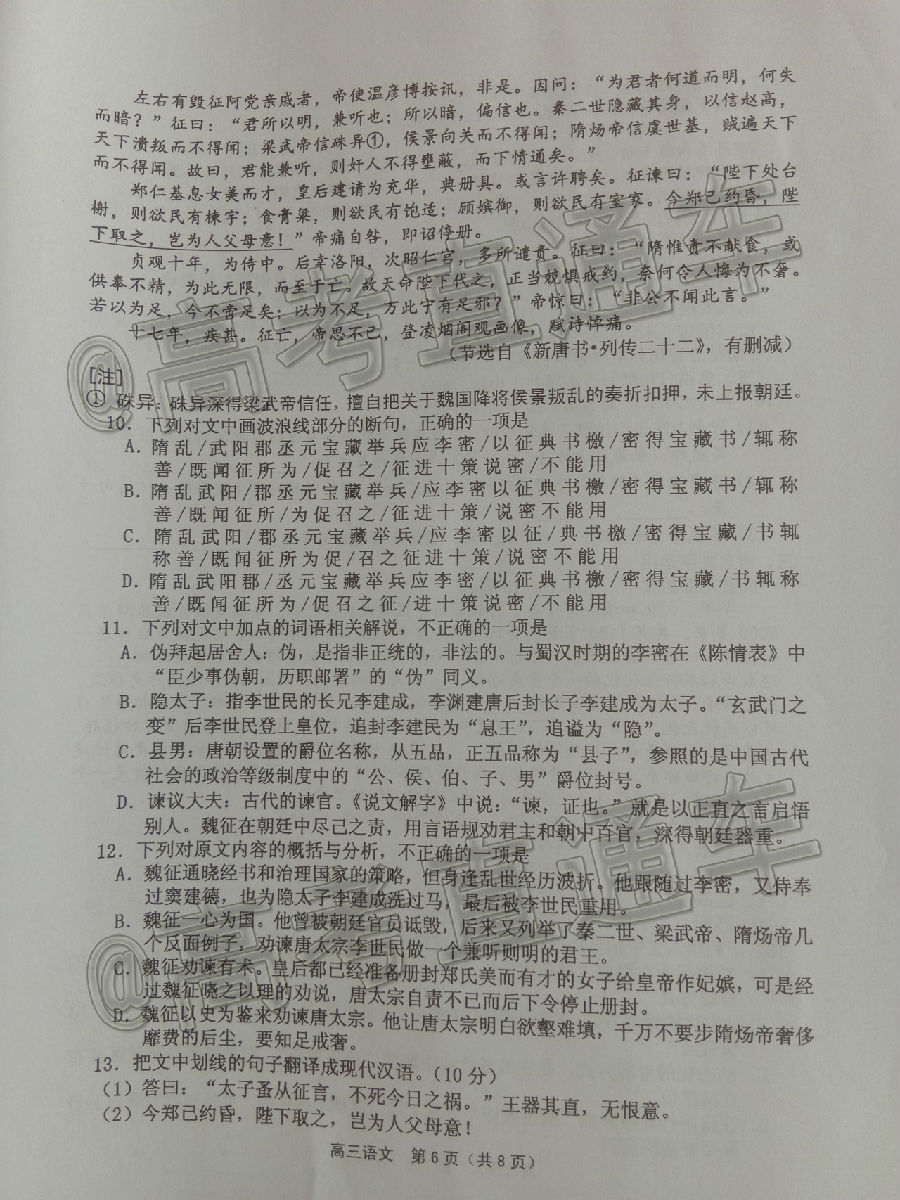 左右有毁征阿党亲戚者，帝使温彦博按讯，非是。因问：“为君者何道而明，何失
而暗？”征曰：“君所以明，兼听也；所以暗，偏信也。秦二世隐藏其身，以信赵高，
天下溃叛而不得闻；梁武帝信硃异①，侯景向关而不得闻；隋炀帝信虞世基，贼遍天下
而不得闻。故曰，君能兼听，则奸人不得壅蔽，而下情通矣。”
郑仁基息女美而才，皇后建请为充华，典册具。或言许聘矣。征谏曰：“陛下处台
榭，则欲民有栋宇；食膏粱，则欲民有饱适；顾嫔御，则欲民有室家。今郑已约昏，陛
下取之，岂为人父母意！”帝痛自咎，即诏停册。
贞观十年，为侍中。后幸洛阳，次昭仁宫，多所谴责。征曰：“隋惟责不献食，或
供奉不精，为此无限，而至于亡。故天命陛下代之，正当兢惧戒约，奈何令人悔为不奢。
若以为足，今不啻足矣；以为不足，万此宁有足邪？”帝惊曰：“非公不闻此言。”
十七年，疾甚。征亡，帝思不已，登凌烟阁观画像，赋诗悼痛。
（节选自《新唐书·列传二十二》，有删减）
[注]
① 硃异：硃异深得梁武帝信任，擅自把关于魏国降将侯景叛乱的奏折扣押，未上报朝廷。
10．下列对文中画波浪线部分的断句，正确的一项是
A．隋乱/武阳郡丞元宝藏举兵应李密/以征典书檄/密得宝藏书/辄称
善/既闻征所为/促召之/征进十策说密/不能用
B．隋乱武阳/郡丞元宝藏举兵/应李密/以征典书檄/密得宝藏书/辄称
善/既闻征所/为促召之/征进十策/说密不能用
C．隋乱武阳/郡丞元宝藏举兵/应李密以征/典书檄/密得宝藏/书辄
称善/既闻征所为促/召之征进十策/说密不能用
D．隋乱武阳郡/丞元宝藏举兵应李密/以征典书檄/密得宝藏/书辄称
善/既闻征所为/促召之征/进十策说密/不能用
11．下列对文中加点的词语相关解说，不正确的一项是
A．伪拜起居舍人：伪，是指非正统的，非法的。与蜀汉时期的李密在《陈情表》中
“臣少事伪朝，历职郎署”的“伪”同义。
B．隐太子：指李世民的长兄李建成，李渊建唐后封长子李建成为太子。“玄武门之
变”后李世民登上皇位，追封李建民为“息王”，追谥为“隐”。
C．县男：唐朝设置的爵位名称，从五品，正五品称为“县子”，参照的是中国古代
社会的政治等级制度中的“公、侯、伯、子、男”爵位封号。
D．谏议大夫：古代的谏官。《说文解字》中说：“谏，证也。”就是以正直之言启悟
别人。魏征在朝廷中尽己之责，用言语规劝君主和朝中百官，深得朝廷器重。
12．下列对原文内容的概括与分析，不正确的一项是
A．魏征通晓经书和治理国家的策略，但身逢乱世经历波折。他跟随过李密，又侍奉
过窦建德，也为隐太子李建成洗过马，最后被李世民重用。
B．魏征一心为国。他曾被朝廷官员诋毁，后来又列举了秦二世、梁武帝、隋炀帝几
个反面例子，劝谏唐太宗李世民做一个兼听则明的君王。
C．魏征劝谏有术。皇后都已经准备册封郑氏美而有才的女子给皇帝作妃嫔，可是经
过魏征晓之以理的劝说，唐太宗自责不已而后下令停止册封。
D．魏征以史为鉴来劝谏唐太宗。他让唐太宗明白欲壑难填，千万不要步隋炀帝奢侈
靡费的后尘，要知足戒奢。
13．把文中划线的句子翻译成现代汉语。（10分）
（1）答曰：“太子蚤从征言，不死今日之祸。”王器其直，无恨意。
（2）今郑已约昏，陛下取之，岂为人父母意！
高三语文 第6页（共8页）
@高考直通车
@高考直通车